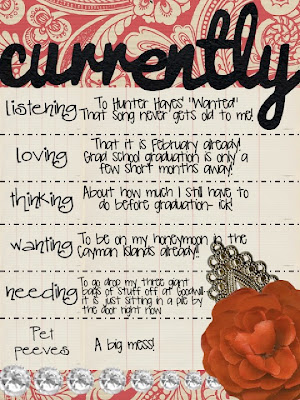 currently
listening
To Hunter Hayes' "Wanted"
That song never gets old to me!
loving
That it is February already!
Grad school graduation is only a
few short months away!
thinking
About how much I still have to
do before graduation- ick!
wanting
To be on my honeymoon the
Cayman Islands already!
needing
To go drop my three giant
bags of stuff off at Goodwill-
it is just sitting in a pile by
the door right now
Pet
peeves
A big mess!